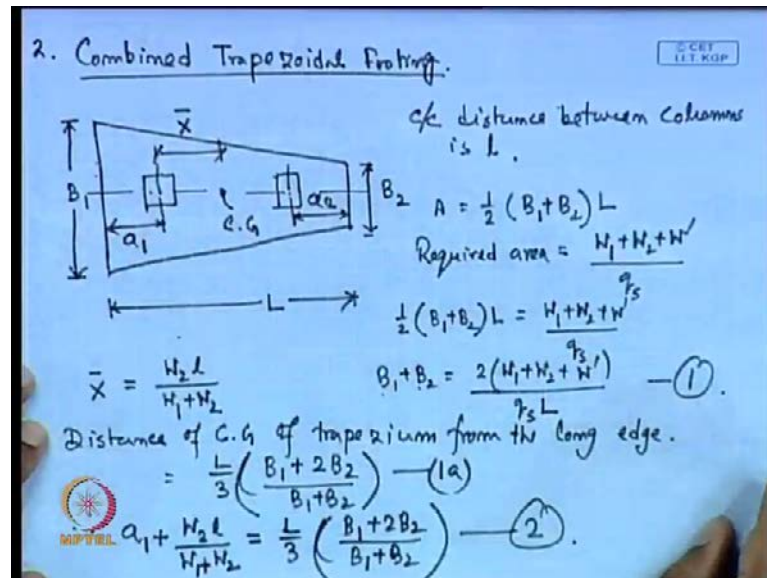 2. Combined Trapezoidal Footing.
© CET
I.I.T. KGP
c/c distance between columns
is l.
x̄
B₁
a₁
C.G
a₂
B₂
L
A = 1/2 (B₁+B₂) L
Required area = (W₁+W₂+W')/qₛ
1/2 (B₁+B₂) L = (W₁+W₂+W')/qₛ
x̄ = W₂l/(W₁+W₂)
B₁+B₂ = 2(W₁+W₂+W')/(qₛL) — ①.
Distance of C.G of trapezium from the long edge.
= L/3 ((B₁+2B₂)/(B₁+B₂)) — (1a)
a₁ + W₂l/(W₁+W₂) = L/3 ((B₁+2B₂)/(B₁+B₂)) — ②.
NPTEL